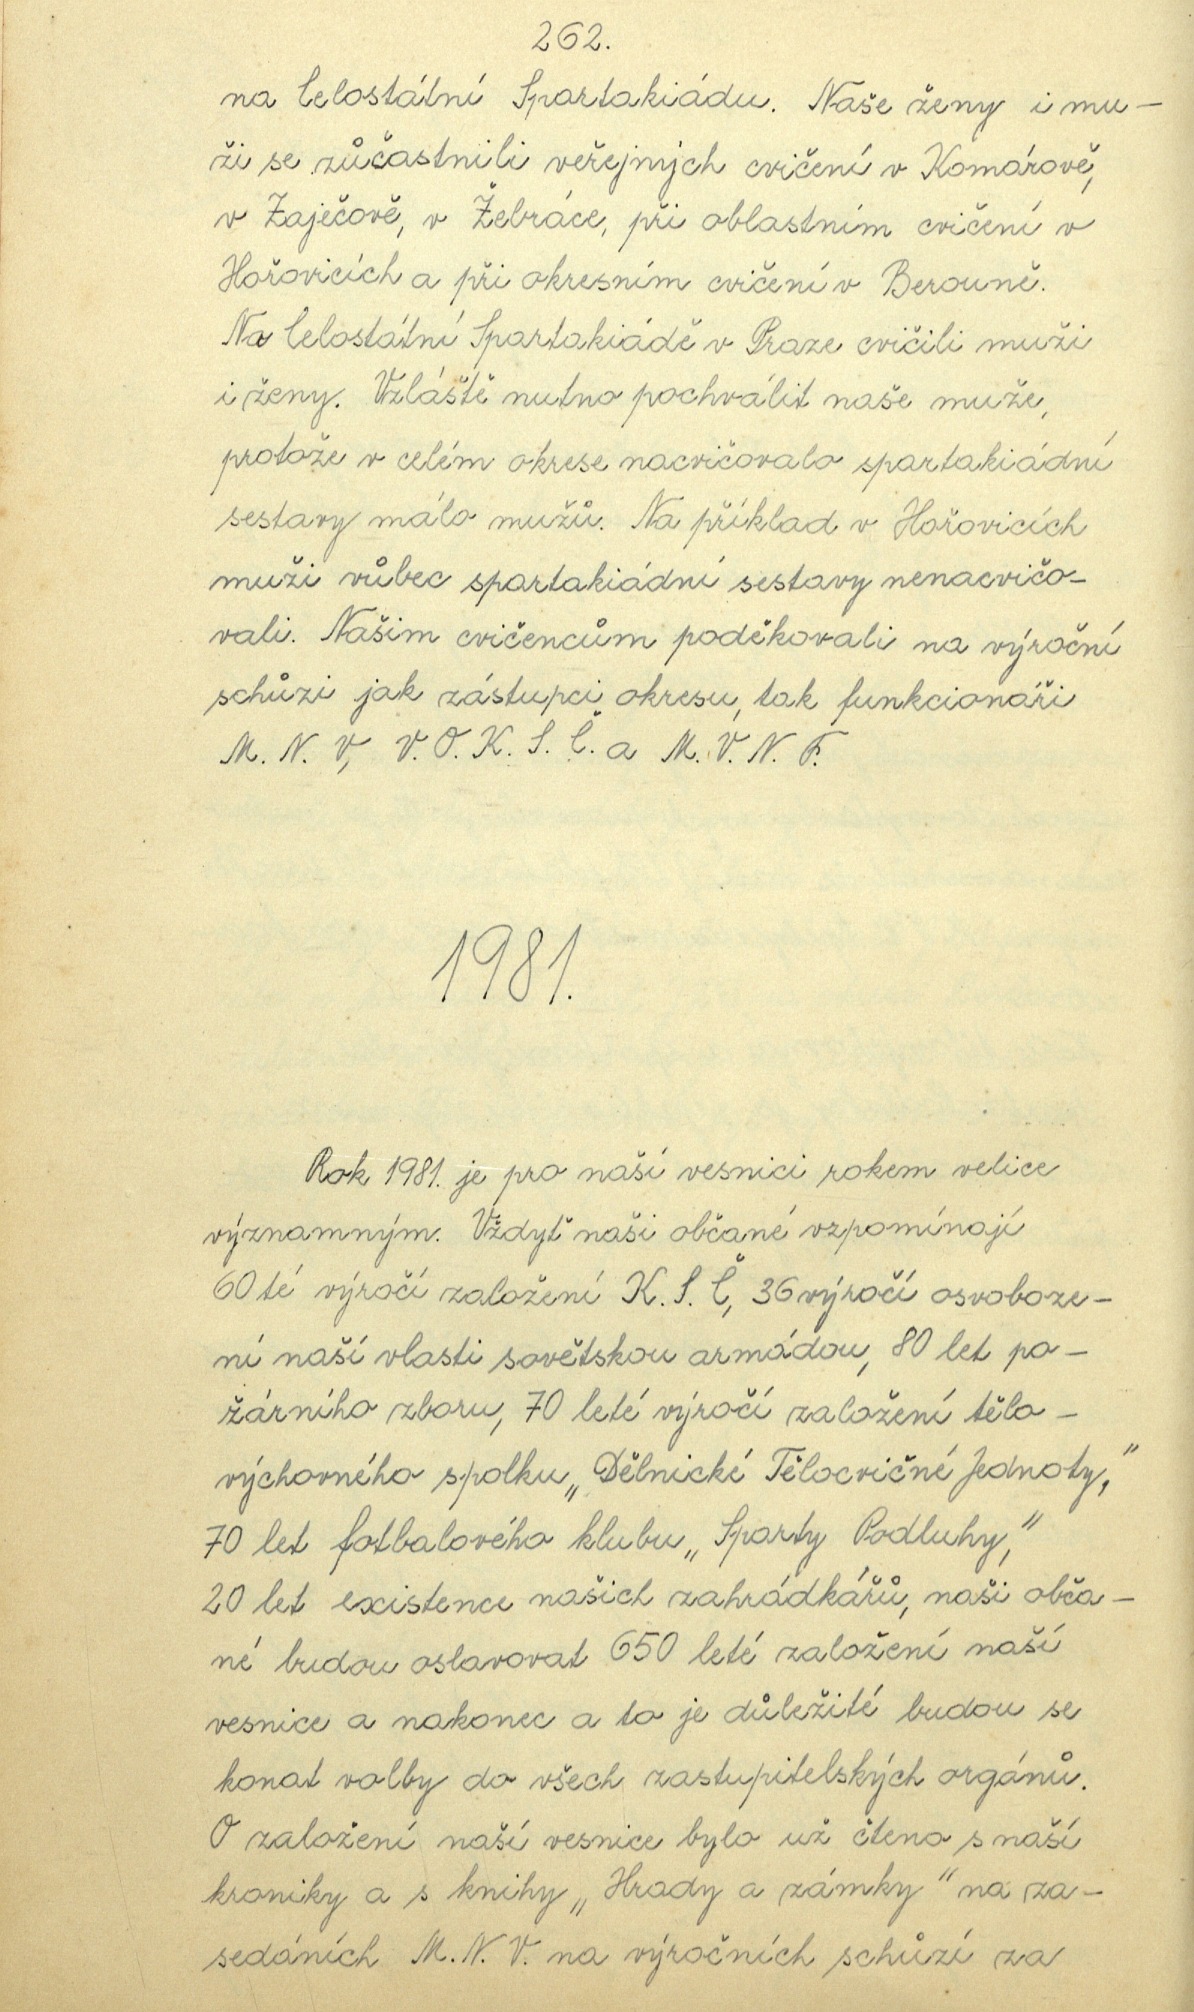 262.
na Celostátní Spartakiádu. Naše ženy i mu-
ži se zůčastnili veřejných cvičení v Komárově,
v Zaječově, v Žebráce, při oblastním cvičení v
Hořovicích a při okresním cvičení v Berouně.
Na Celostátní Spartakiádě v Praze cvičili muži
i ženy. Vzláště nutno pochválit naše muže,
protože v celém okrese nacvičovalo spartakiádní
sestavy málo mužů. Na příklad v Hořovicích
muži vůbec spartakiádní sestavy nenacvičo-
vali. Našim cvičencům poděkovali na výroční
schůzi jak zástupci okresu, tak funkcionáři
M. N. V, V. O. K. S. Č. a M. V. N. F.
1981.
Rok 1981. je pro naší vesnici rokem velice
významným. Vždyť naši občané vzpomínají
60 té výročí založení K. S. Č, 36 výročí osvoboze-
ní naší vlasti sovětskou armádou, 80 let po-
žárního zboru, 70 leté výročí založení tělo-
výchovného spolku „Dělnické Tělocvičné Jednoty,"
70 let fotbalového klubu „Sparty Podluhy,"
20 let existence našich zahrádkářů, naši obča-
né budou oslavovat 650 leté založení naší
vesnice a nakonec a to je důležité budou se
konat volby do všech zastupitelských orgánů.
O založení naší vesnice bylo už čteno s naší
kroniky a s knihy „Hrady a zámky" na za-
sedáních M. N. V. na výročních schůzí za